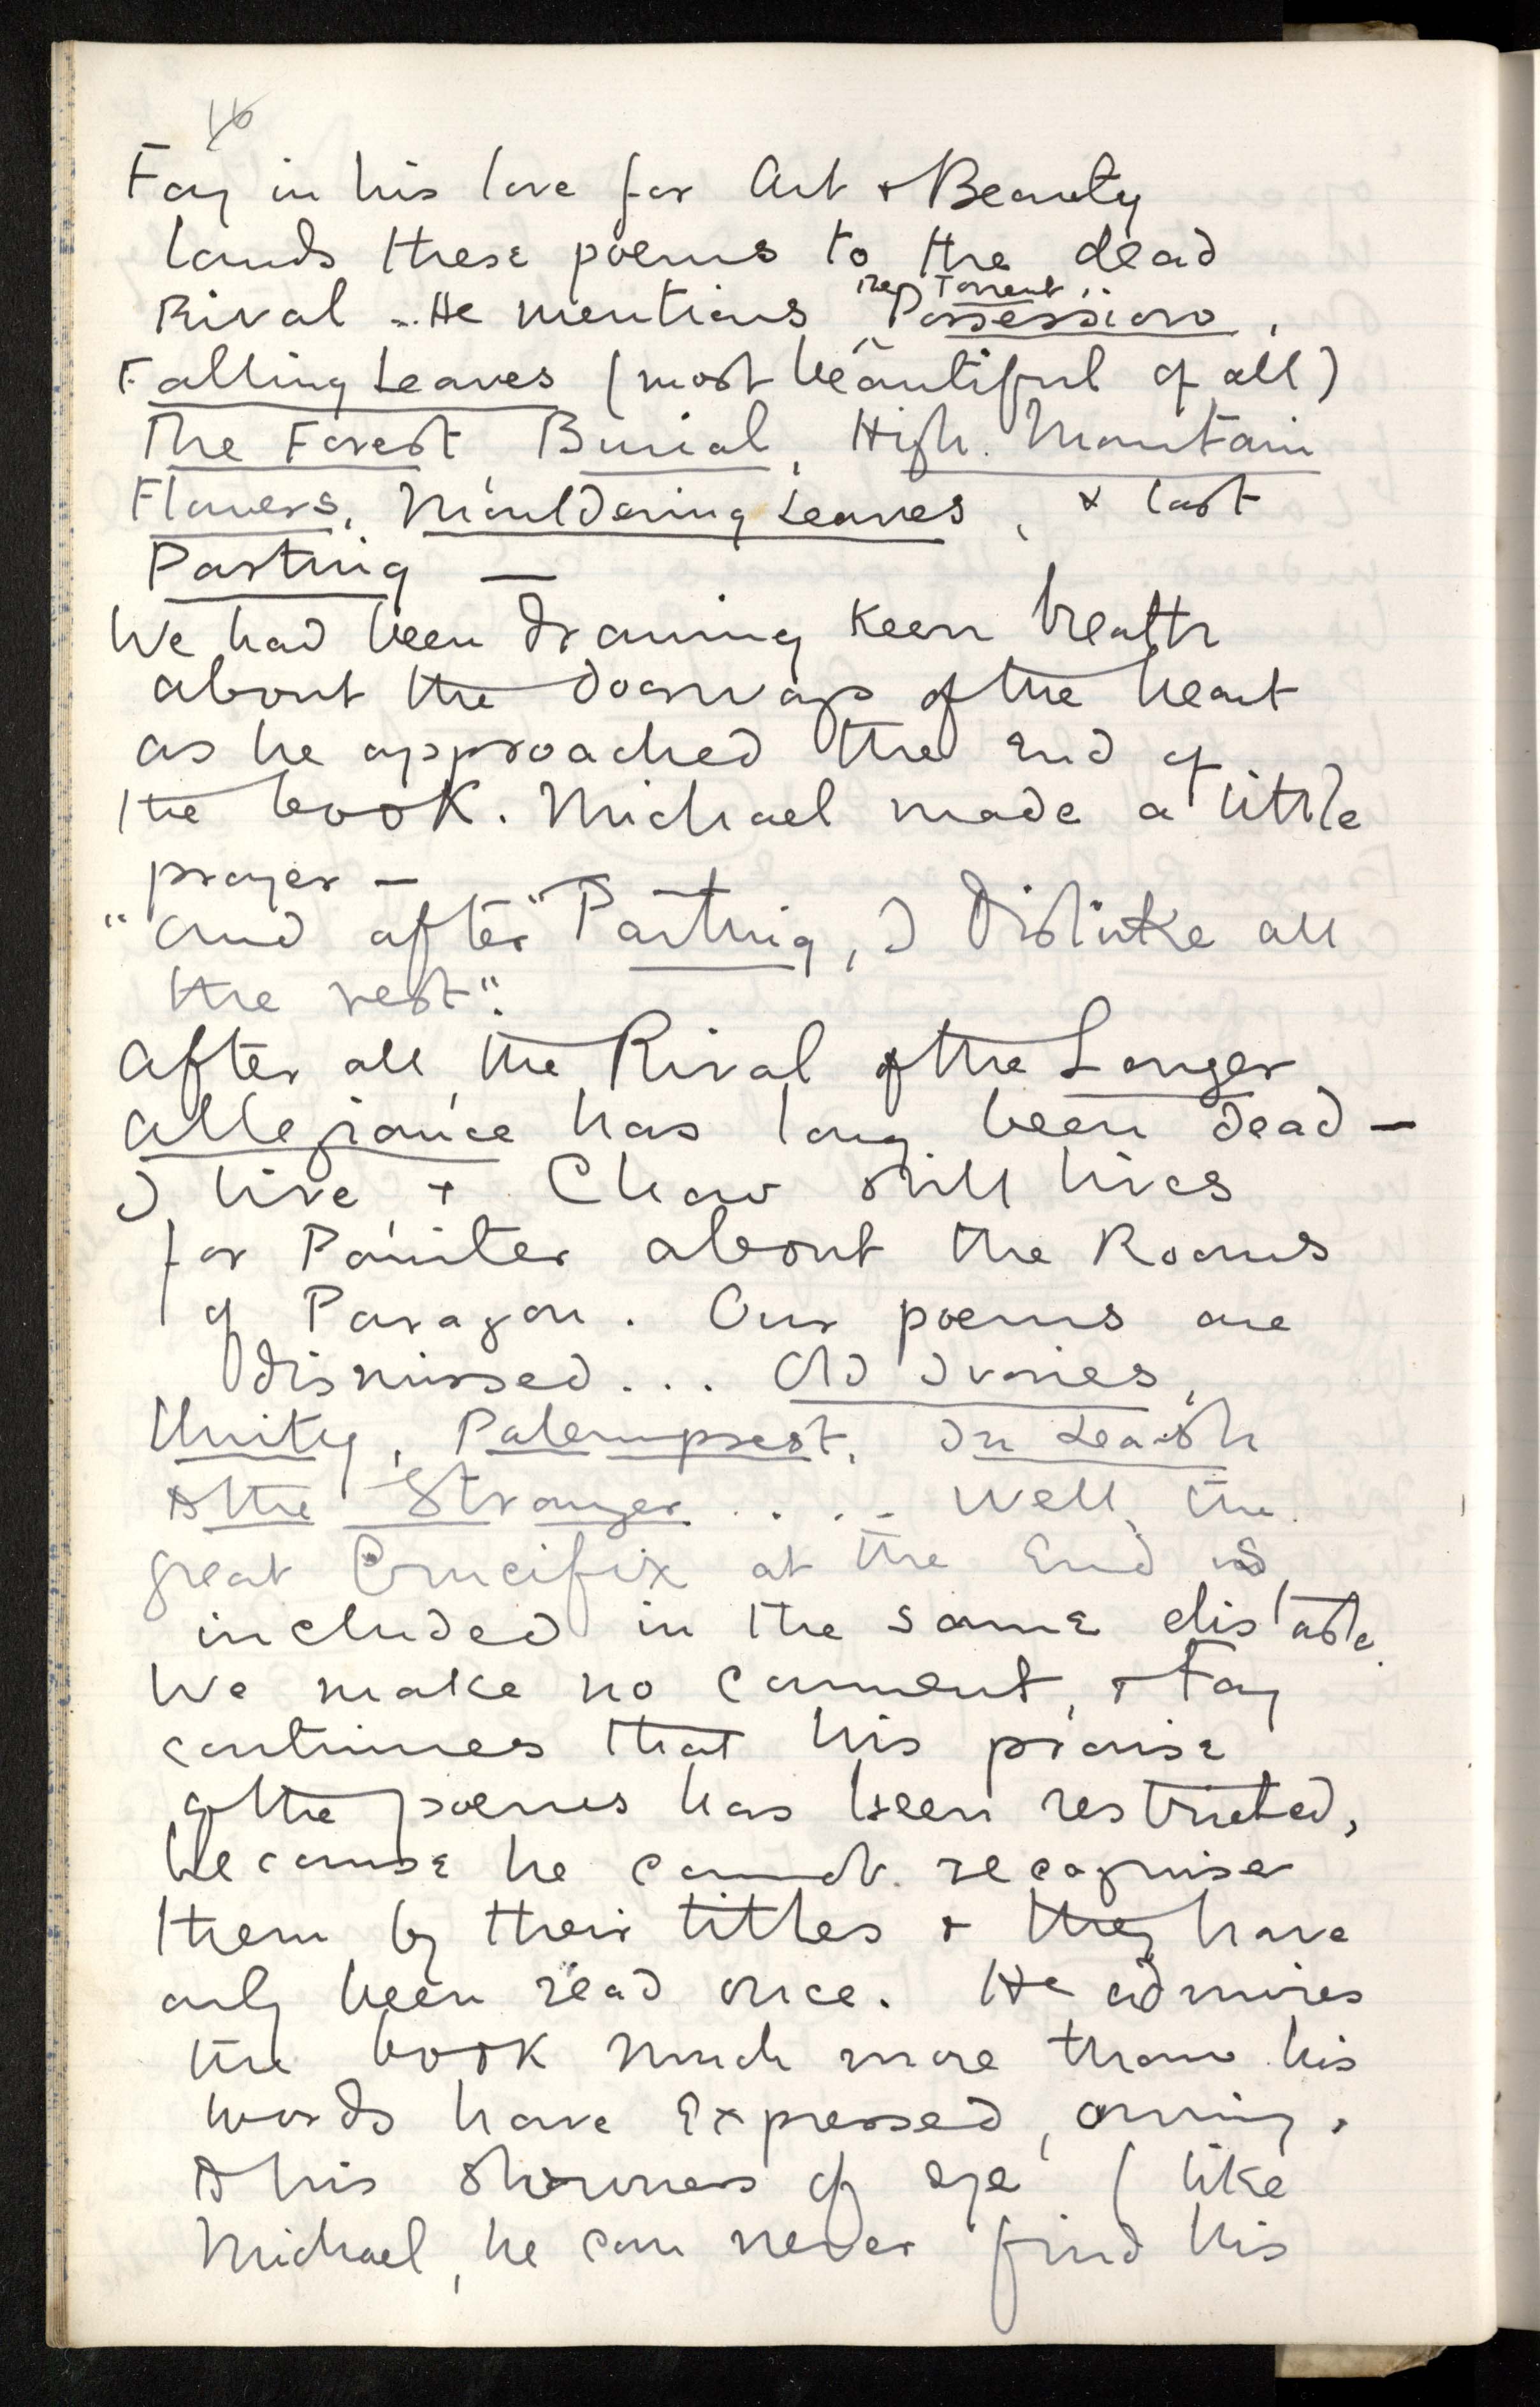 16
Fay in his love for Art + Beauty
lauds these poems to the dead
Rival ... He mentions The Torrent, Possession,
Falling Leaves (most beautiful of all)
The Forest, Burial, High Mountain
Flowers, Mouldering Leaves, & last
Parting —
We had been drawing keen breath
about the doorways of the heart
as he approached the end of
the book. Michael made a little
prayer —
"And after "Parting, I dislike all
the rest".
After all, the Rival of the Longer
Allegiance has long been dead —
I live + Chow still lives
for Painter about the Rooms
of Paragon. Our poems are
dismissed... Old Ivories,
Unity, Palempsest, In Leash
& the Stranger .... Well, the
great Crucifix at the End is
included in the same distaste.
We make no comment, + Fay
continues that his praise
of the poems has been restricted,
because he cannot recognise
them by their titles + they have
only been read once. He admires
the book much more than his
words have expressed, owing
to his slowness of eye (like
Michael, he can never find his